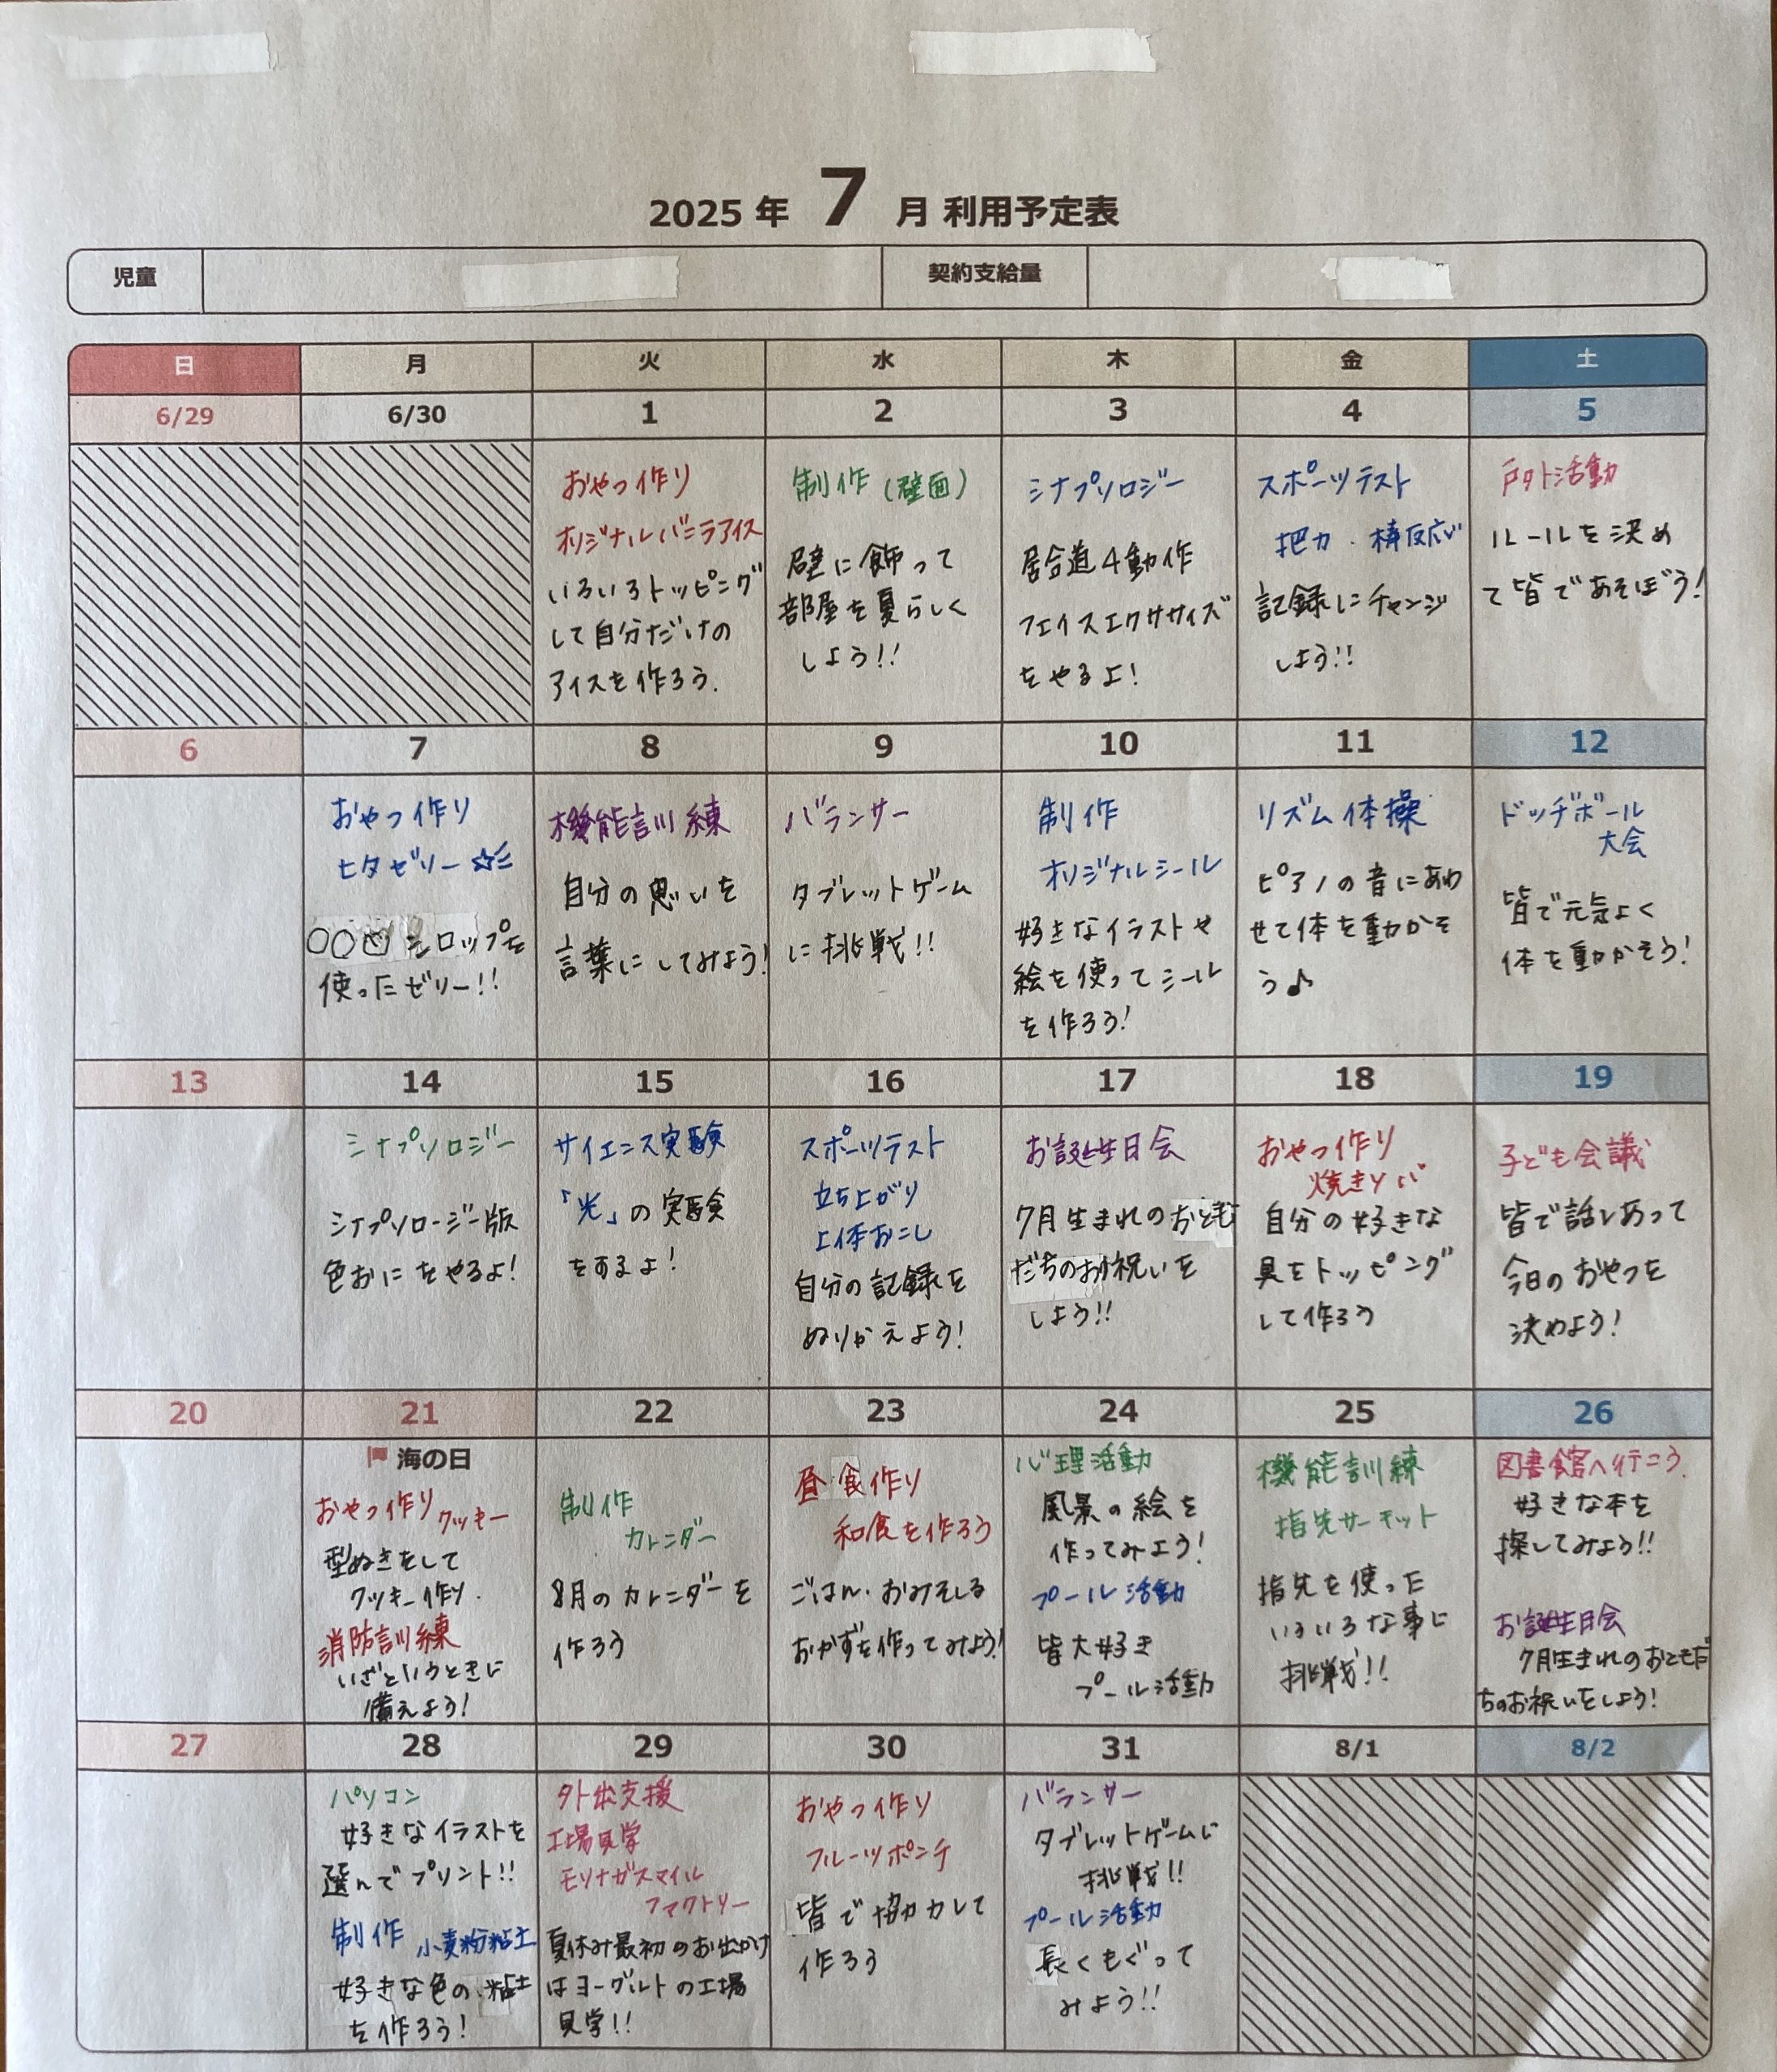 2025 年 7 月 利用予定表
児童
契約支給量
日 月 火 水 木 金 土
6/29 6/30 1 2 3 4 5
おやつ作り
オリジナルバニラアイス
いろいろトッピング
して自分だけの
アイスを作ろう.
制作(壁面)
壁に飾って
部屋を夏らしく
しよう!!
シナプソロジー
居合道4動作
フェイスエクササイズ
をやるよ!
スポーツテスト
把力・棒反応
記録にチャレンジ
しよう!!
戸外活動
ルールを決め
て皆であそぼう!
6 7 8 9 10 11 12
おやつ作り
七夕ゼリー☆
○○○シロップを
使ったゼリー!!
機能訓練
自分の思いを
言葉にしてみよう!
バランサー
タブレットゲーム
に挑戦!!
制作
オリジナルシール
好きなイラストや
絵を使ってシール
を作ろう!
リズム体操
ピアノの音にあわ
せて体を動かそ
う♪
ドッヂボール
大会
皆で元気よく
体を動かそう!
13 14 15 16 17 18 19
シナプソロジー
シナプソロージー版
色おにをやるよ!
サイエンス実験
「光」の実験
をするよ!
スポーツテスト
立ち上がり
上体おこし
自分の記録を
ぬりかえよう!
お誕生日会
7月生まれのおとも
だちのお祝いを
しよう!!
おやつ作り
焼きソバ
自分の好きな
具をトッピング
して作ろう
子ども会議
皆で話しあって
今日のおやつを
決めよう!
20 21 22 23 24 25 26
海の日
おやつ作り クッキー
型ぬきをして
クッキー作り.
消防訓練
いざというときに
備えよう!
制作
カレンダー
8月のカレンダーを
作ろう
昼食作り
和食を作ろう
ごはん・おみそしる
おかずを作ってみよう!
心理活動
風景の絵を
作ってみよう!
プール活動
皆大好き
プール活動
機能訓練
指先サーキット
指先を使った
いろいろな事に
挑戦!!
図書館へ行こう.
好きな本を
探してみよう!!
お誕生日会
7月生まれのおともだ
ちのお祝いをしよう!
27 28 29 30 31 8/1 8/2
パソコン
好きなイラストを
選んでプリント!!
制作 小麦粉粘土
好きな色の粘土
を作ろう!
外出支援
工場見学
モリナガスマイル
ファクトリー
夏休み最初のお出かけ
はヨーグルトの工場
見学!!
おやつ作り
フルーツポンチ
皆で協力して
作ろう
バランサー
タブレットゲームに
挑戦!!
プール活動
長くもぐって
みよう!!